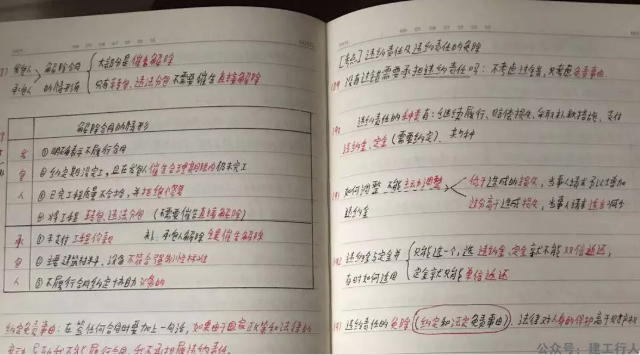 发包人
承包人
解除合同的情形有
大部分是催告解除
只有转包、违法分包不需要催告直接解除
解除合同的情形
发包人
①明确表示不履行合同
②约定期没完工,且在发包人催告合理期限内仍未完工
③已完工程质量不合格,并拒绝修复
④将工程转包、违法分包(不需要催告直接解除)
承包人
①未支付工程价款
承包人解除全是催告解除
②主要建筑材料、设备不符合强制性标准
③不履行合同约定协助义务的
约定免责事由:在签任何合同时要加上一句话,如果由于国家政策和法律的
[考点]违约责任及违约责任的免除
没有过错需要承担违约责任吗:不考虑过错,只考虑免责事由
违约责任的种类有:继续履行、赔偿损失、采取补救措施、支付
违约金、定金(需要约定)
如何调整违约金
不能主动调整
低于造成的损失,当事人请求予以增加
过分高于造成损失,当事人请求适当减少
违约金与定金并存时如何适用
只能选一个,选违约金,定金就不能双倍返还
定金就只能单倍返还
违约责任的免除(约定和法定免责事由)
公众号:建工行人